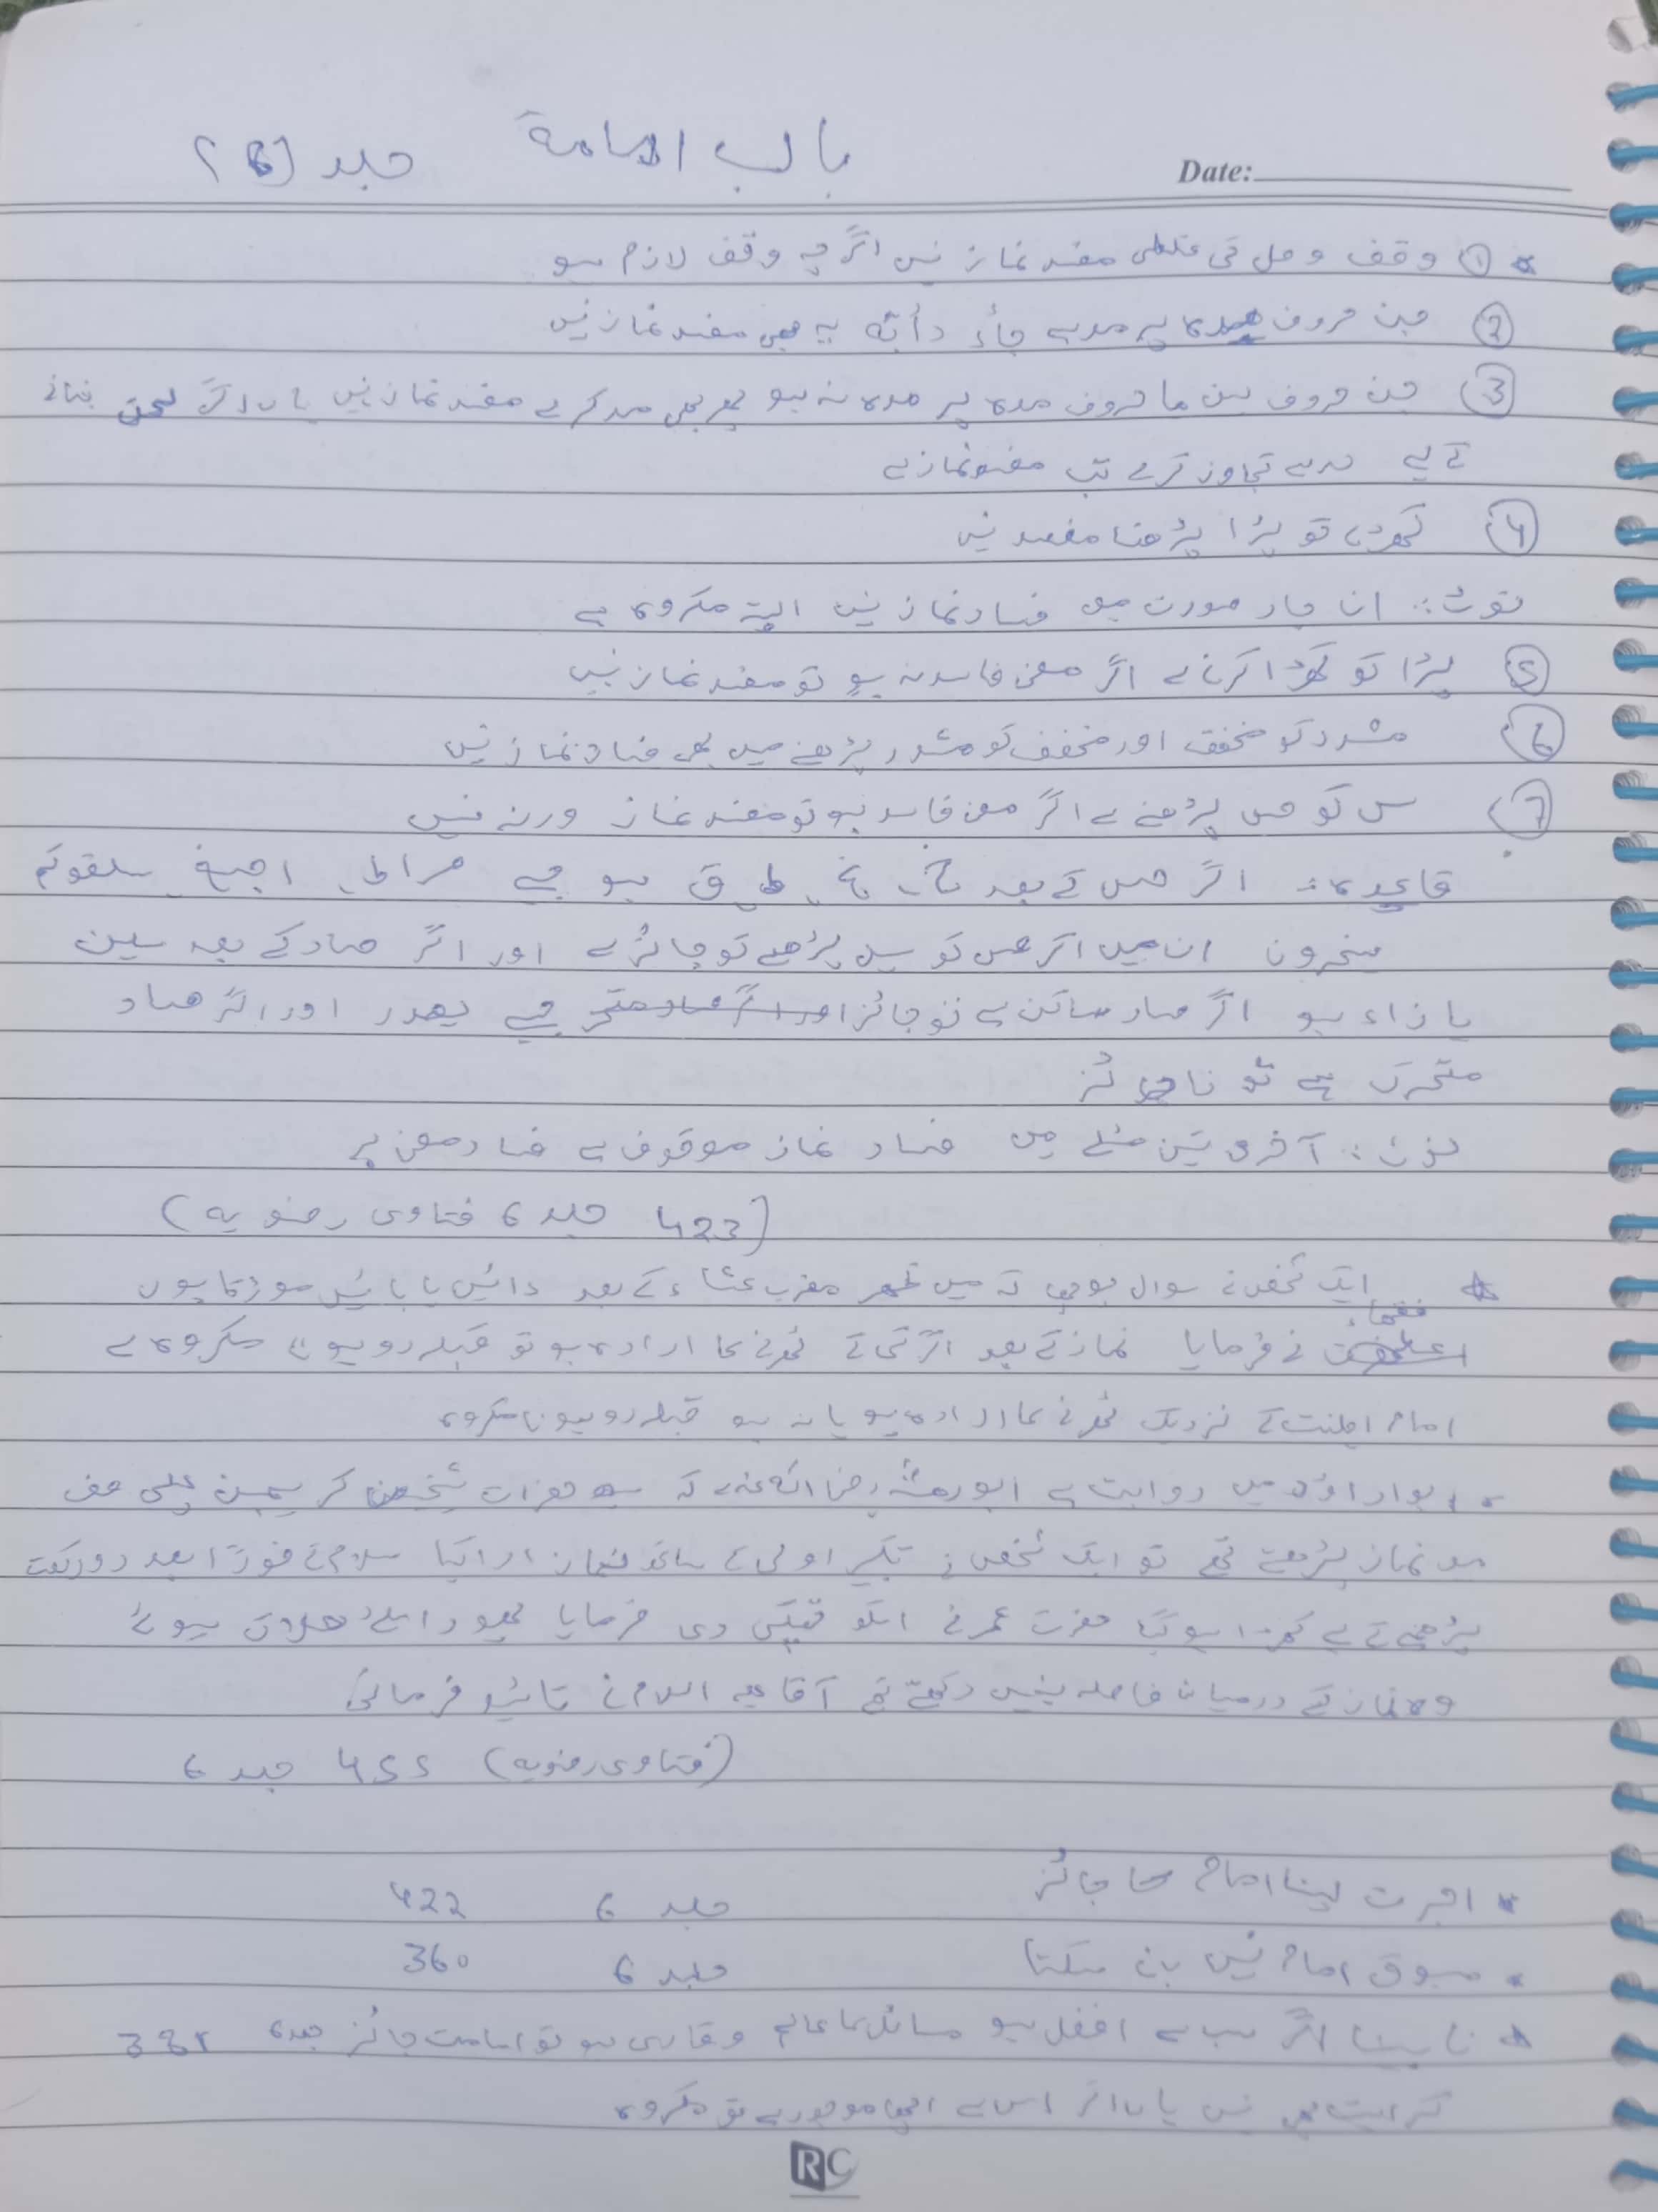 باب الامامة جلد (6)
Date:
① وقف وصل کی غلطی مفسد نماز نہیں اگرچہ وقف لازم ہو
② جن حروف مدہ پر مد ہے جاء دآبۃ یہ بھی مفسد نماز نہیں
③ جن حروف میں یا حروف مدہ پر مدہ نہ ہو پھر بھی مد کرے مفسد نماز نہیں ہاں اگر لحن بنانے
کے لیے حد سے تجاوز کرے تب مفسد نماز ہے
④ کھڑی کو پڑا پڑھنا مفسد نہیں
نوٹ: ان چار صورت میں فساد نماز نہیں البتہ مکروہ ہے
⑤ پڑا کو کھڑا کرنے سے اگر معنی فاسد نہ ہو تو مفسد نماز نہیں
⑥ مشدد کو مخفف اور مخفف کو مشدد پڑھنے میں بھی فساد نماز نہیں
⑦ س کو ص پڑھنے سے اگر معنی فاسد ہو تو مفسد نماز ورنہ نہیں
قاعدہ: اگر ص کے بعد ط ق ہو جیسے صراط
ان میں اگر ص کو س پڑھے تو جائز ہے اور اگر صاد کے بعد سین
یا زاء ہو اگر صاد ساکن ہے تو جائز جیسے یصدر اور اگر صاد
متحرک ہے تو ناجائز
نوٹ: آخری تین مسئلے میں فساد نماز موقوف ہے فساد معنی پر
(423 جلد 6 فتاوی رضویہ)
ایک شخص نے سوال پوچھا کہ میں ظہر مغرب عشاء کے بعد دائیں یا بائیں موڑتا ہوں
فقہاء نے فرمایا نماز کے بعد اگر کسی کے ارادہ ہو تو قبلہ رو ہونا مکروہ ہے
امام اہلسنت کے نزدیک ارادہ ہو یا نہ ہو قبلہ رو ہونا مکروہ
ابوداؤد میں روایت ہے ابورمثہ رضی اللہ عنہ کہ حضرات شیخین
میں نماز پڑھتے تھے تو ایک شخص نے تکبیر اولی کے ساتھ نماز ادا کیا سلام کے فوراً بعد دو رکعت
پڑھنے کے لیے کھڑا ہو گیا حضرت عمر نے اسکو دی فرمایا یہود اسلئے ہلاک ہوئے
وہ نماز کے درمیان فاصلہ نہیں رکھتے تھے آقا علیہ السلام نے تائید فرمائی
(فتاوی رضویہ) 455 جلد 6
اجرت لینا امام کا جائز جلد 6 422
مسبوق امام نہیں بن سکتا جلد 6 360
نابینا اگر سب سے افضل ہو مسائل کا عالم و قاری ہو تو امامت جائز جلد 6 381
کراہیت بھی نہیں ہاں اگر اس سے اچھا موجود ہے تو مکروہ
RC